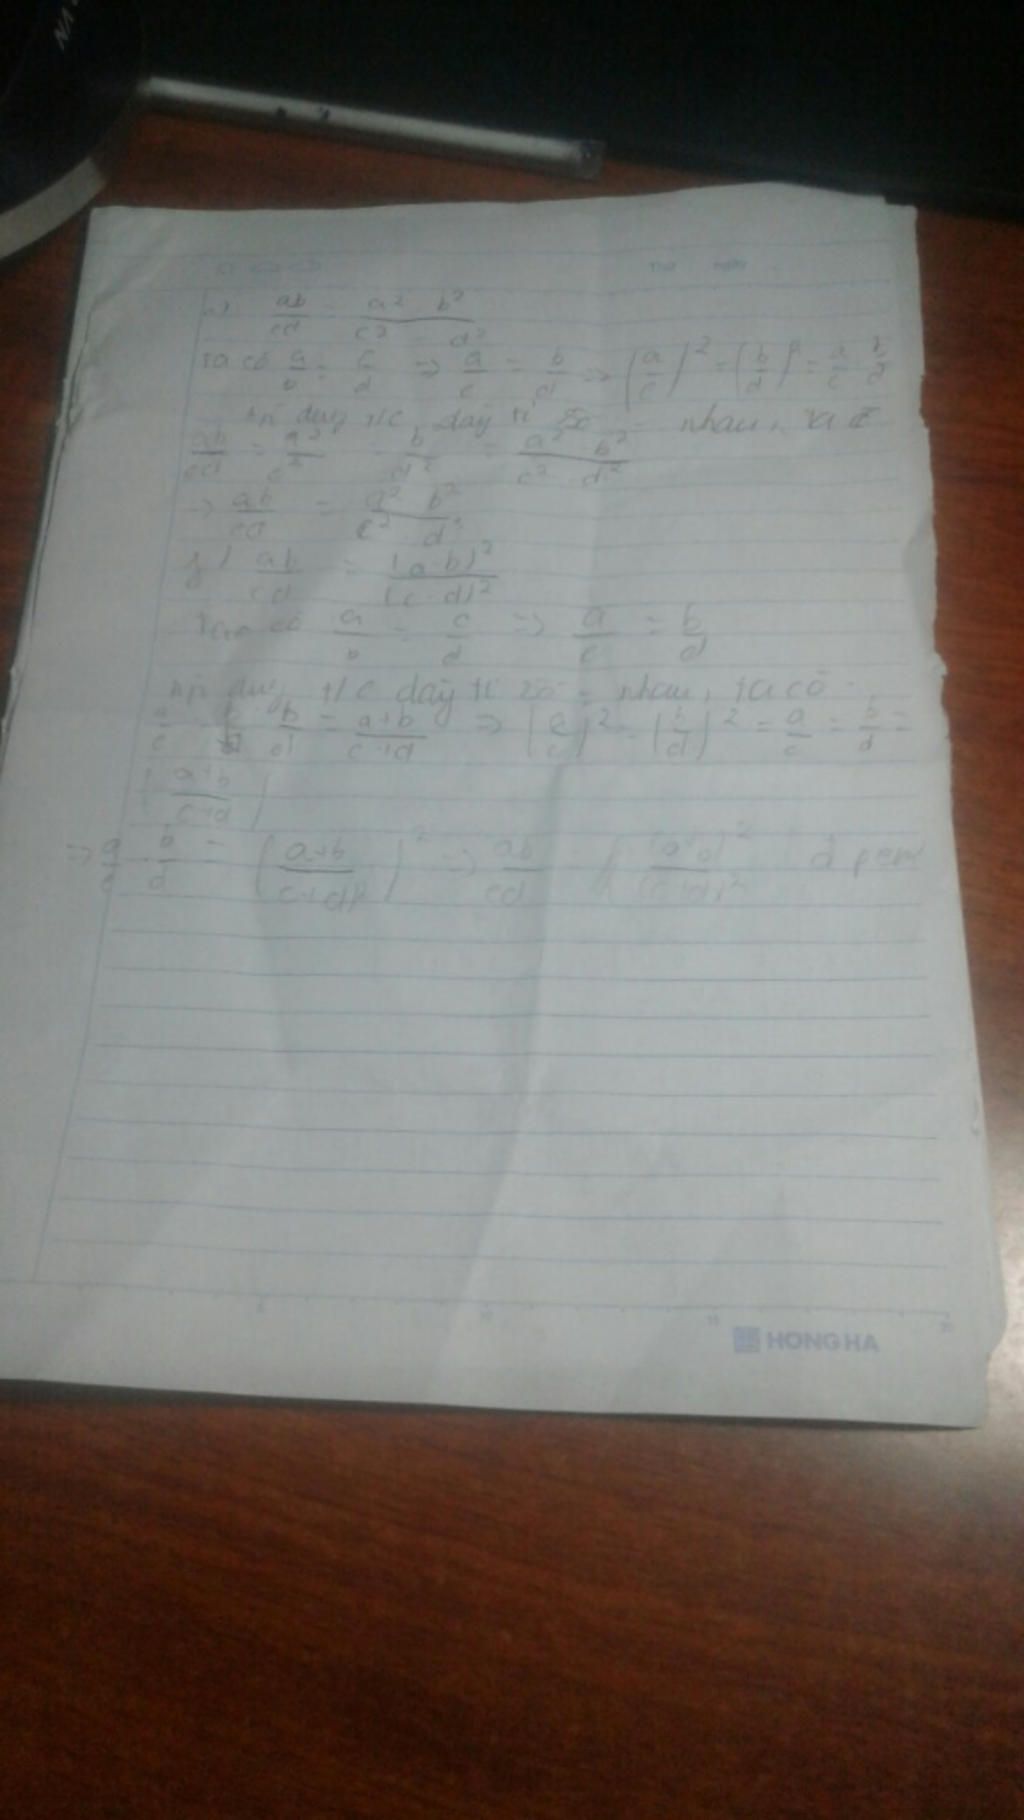 VN
Thứ ngày
ab/cd = a² b²/c² d²
Ta có a/b = c/d => a/c = b/d => (a/c)² = (b/d)² = a/c · b/d
t/c dãy tỉ số = nhau, ta có
ab/cd = a²/c² = b²/d² = a² b²/c² d²
=> ab/cd = a² b²/c² d²
ab/cd = (a b)²/(c d)²
Ta có a/b = c/d => a/c = b/d
t/c dãy tỉ số = nhau, ta có
a/c = b/d = a+b/c+d => (a/c)² = (b/d)² = a/c = b/d =
(a+b/c+d)
=> a/c · b/d = (a+b/c+d)² => ab/cd = (a+b)²/(c+d)² đpcm
10
15
20
HONG HA